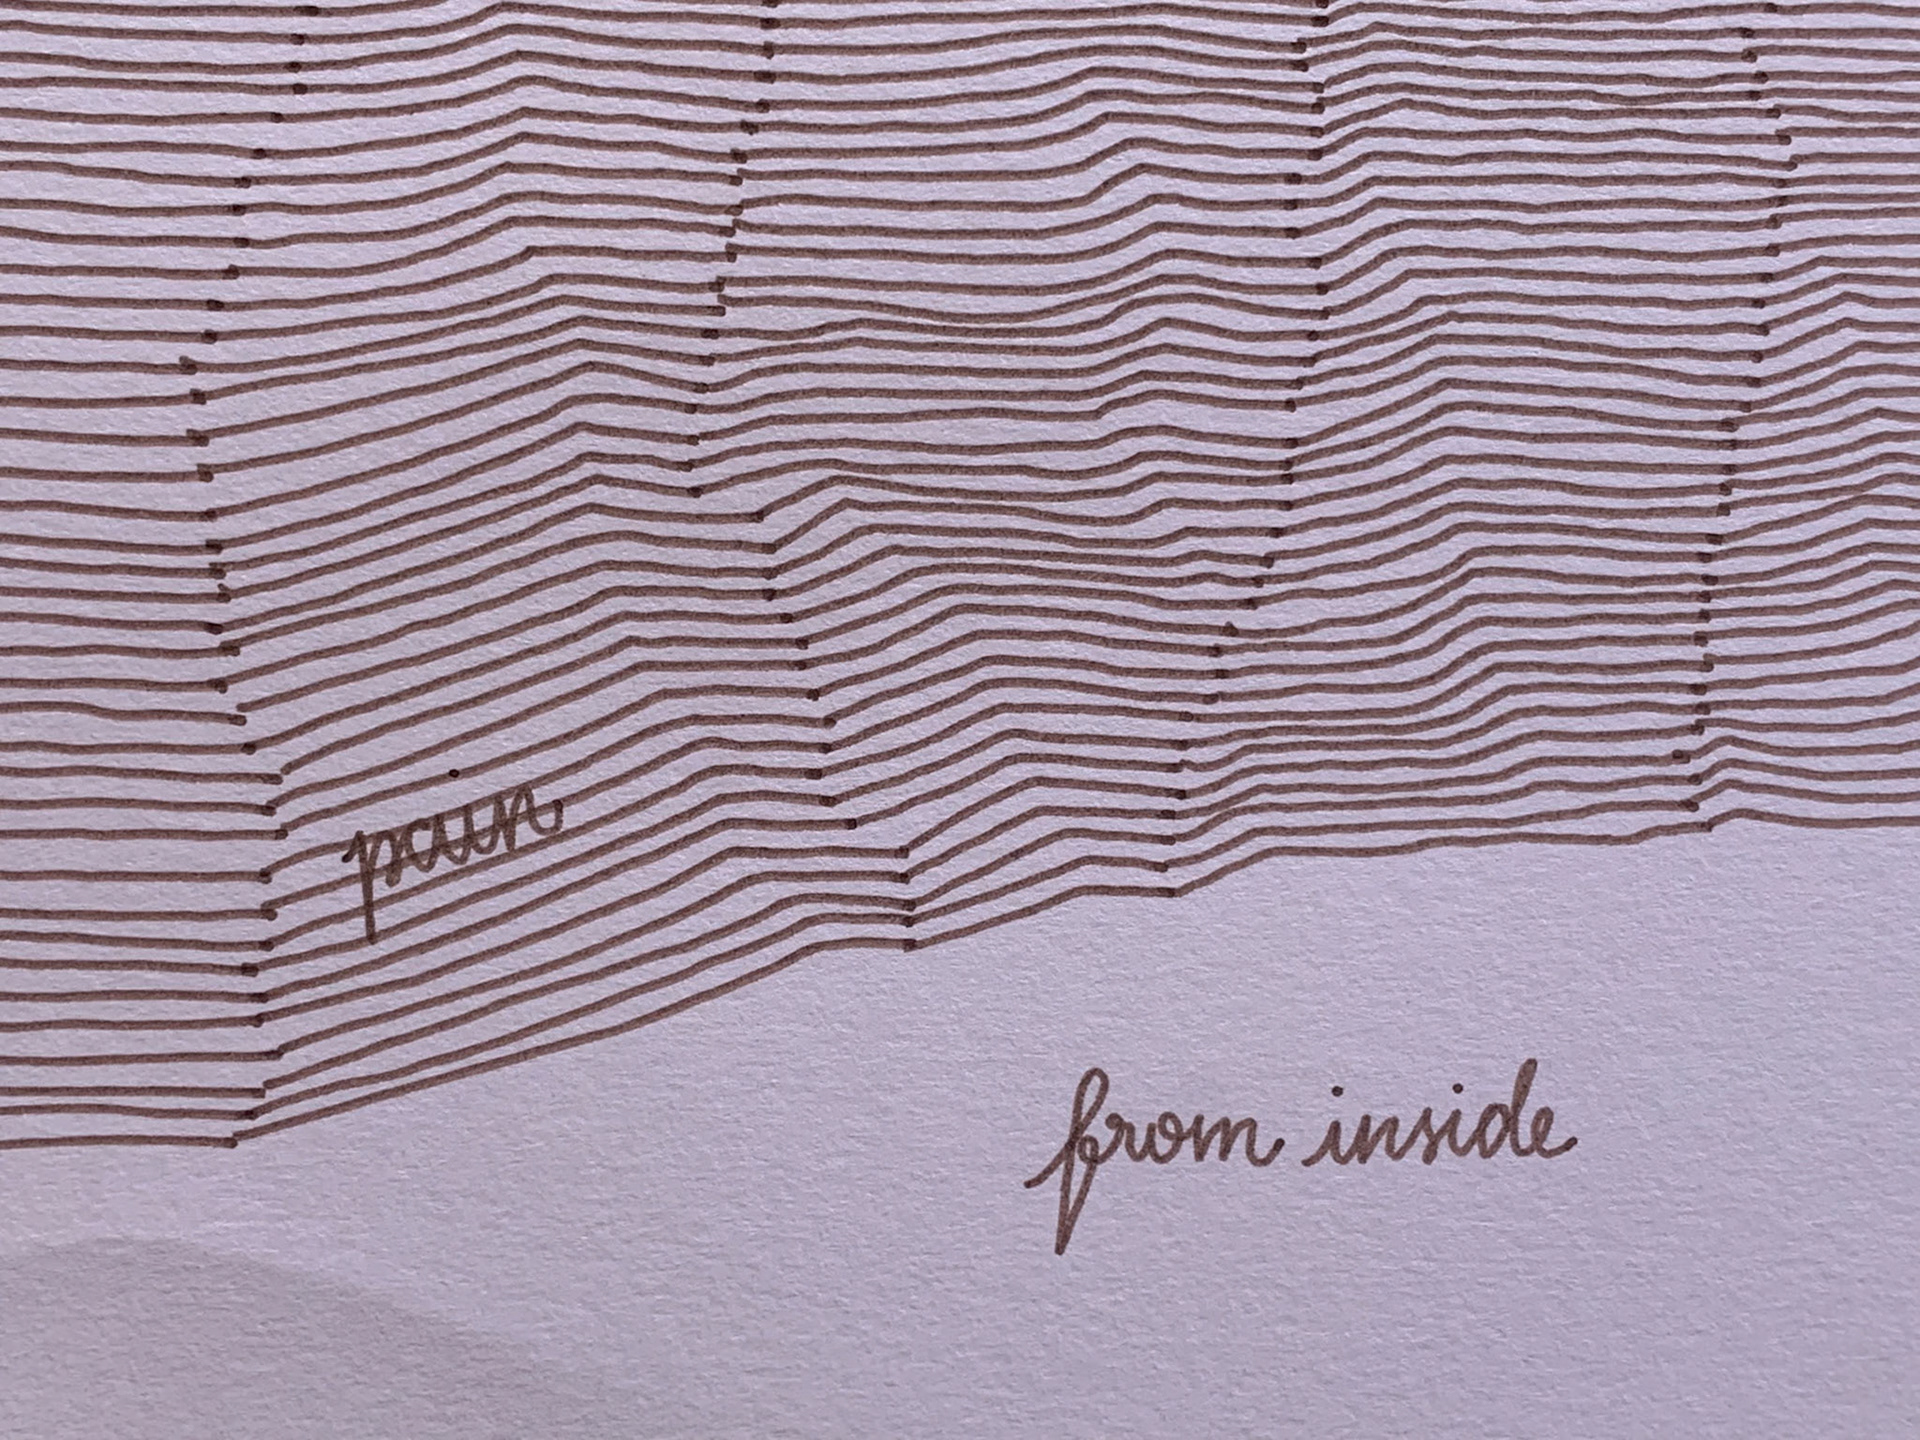 pain
from inside